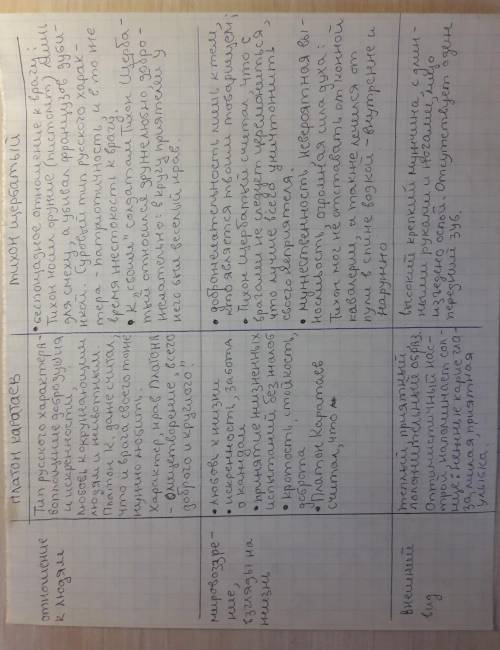 Платон Каратаев
Тихон Щербатый
отношение
к людям
Тип русского характера –
воплощение добродушия
и искренности.
Любовь к окружающим
людям и животным.
Платон К. даже считал,
что и врага своего тоже
нужно любить.
Характер, нрав Платона
– Олицетворение „всего
доброго и круглого"
• беспощадное отношение к врагу:
Тихон носил оружие (пистолет) лишь
для смеху, а убивал французов дуби-
нкой. Суровый тип русского харак-
тера – патриотичность и в то же
время жестокость к врагу.
• К своим солдатам Тихон Щерба-
тый относился дружелюбно, добро-
желательно: в кругу приятелей у
него был веселый нрав.
мировоззре-
ние,
взгляды на
жизнь
• любовь к жизни
• искренность, забота
о каждом
• принятие жизненных
испытаний без жалоб
• кротость, стойкость,
доброта
• Платон Каратаев
считал, что
• доброжелательность лишь к тем,
кто является твоим товарищем;
• Тихон Щербатый считал что с
врагами не следует церемониться,
что лучше всего уничтожить
своего неприятеля.
• мужественность, невероятная вы-
носливость, огромная сила духа:
Тихон мог не отставать от конной
кавалерии, а также лечился от
пули в спине водкой – внутренне и
наружно
внешний
вид
теплый, приятный
положительный образ.
Оптимистичный нас-
трой напоминает сол-
нце: нежные карие гла-
за, милая, приятная
улыбка,
Высокий крепкий мужчина с длин-
ными руками и ногами, лицо
изъедено оспой. Отсутствует один
передний зуб.